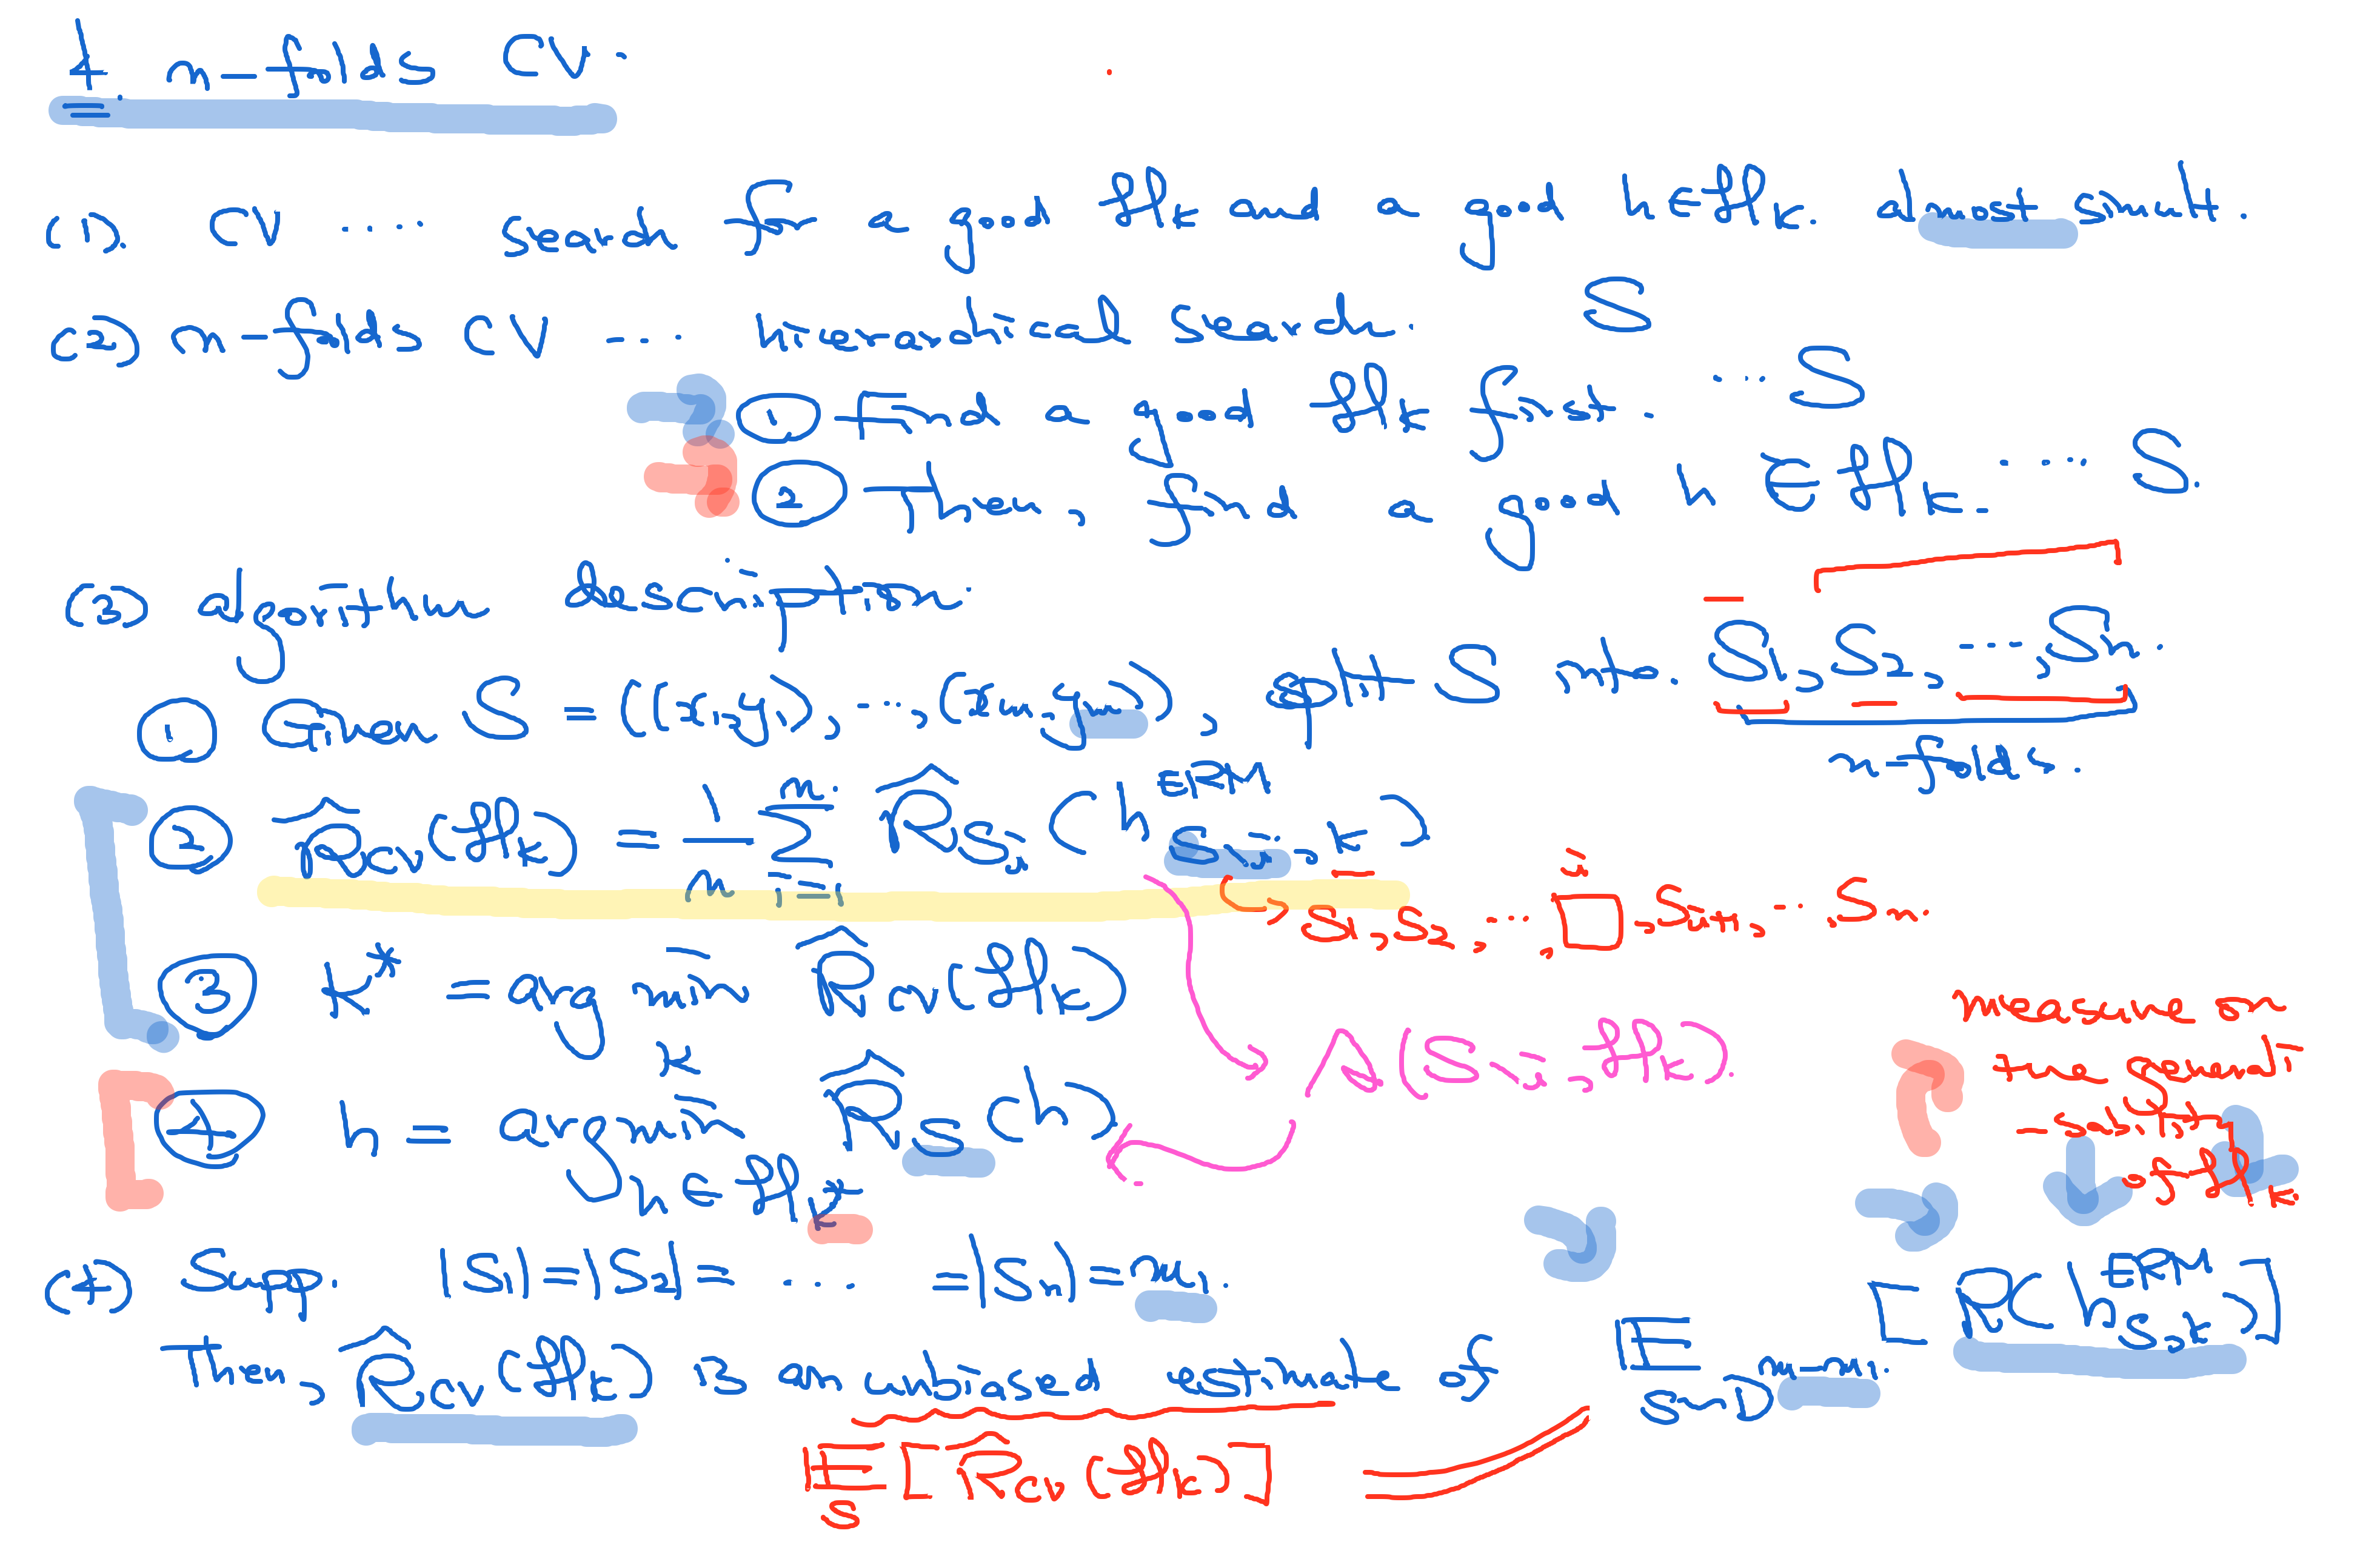 4. n-folds CV.
(1). CV ... search for a good H_k and a good h ∈ H_k. almost simult.
(2) n-folds CV .... hierarchical search. S
① Find a good H_k first. ... S
② Then, find a good h ∈ H_k. .... S.
(3) algorithm description.
① Given S = ((x_1,y_1), ..., (x_m,y_m)), split S into S_1, S_2, ...., S_n.
n-folds.
② R̂_CV(H_k) = 1/n Σ_{i=1}^{n} R̂_{S_i}(h^{ERM}_{S_{-i},k})
S_1, S_2, ..., □, S_{i+1}, ..., S_n.
i
③ k* = argmin_k R̂_CV(H_k)
A(S_{-i}, H_k).
measure on
the generali
-sability
of H_k.
④ h = argmin_{h∈H_{k*}} R̂_S(h)
(4) Supp. |S_1| = |S_2| = ... = |S_n| = m_1.
Then, R̂_CV(H_k) is an unbiased estimate of E_{S~D^{m-m_1}} [R(h^{ERM}_{S,k})]
E_S[R̂_CV(H_k)]